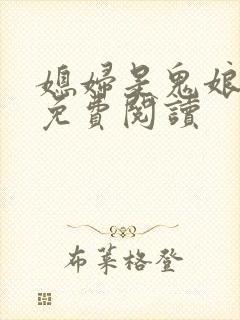 媳婦是鬼娘
免費閱讀
布萊格登